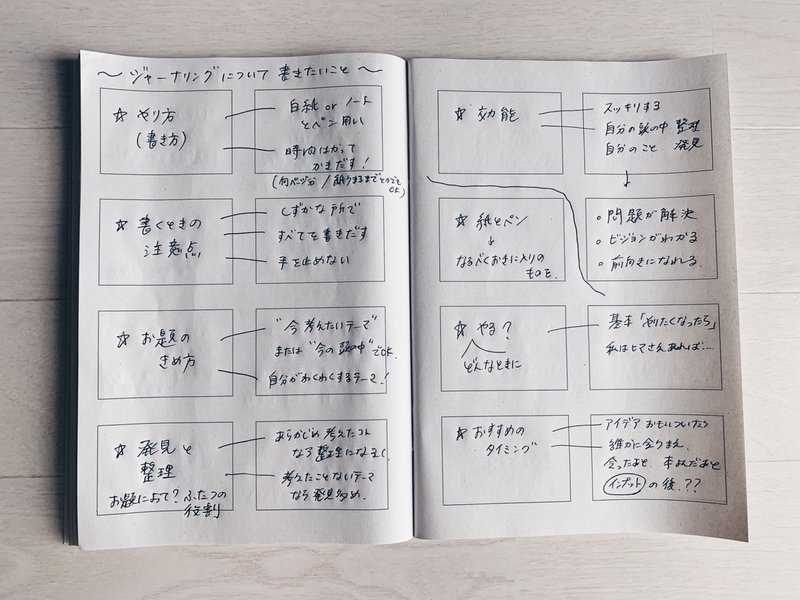 ～ ジャーナリングについて 書きたいこと ～
☆ やり方
(書き方)
白紙 or ノート
とペン 用い
時間はかって
かきだす!
(何ページ分 / 語りきるまでとかでもOK)
☆ 書くときの
注意点
しずかな所で
すべてを書きだす
手を止めない
☆ お題の
きめ方
"今 考えたいテーマ"
または "今の頭の中" でOK.
自分がわくわくするテーマ!
☆ 発見と
整理
お題によって? ふたつの
役割
あらかじめ 考えたコト
なら 整理になるし
考えたことないテーマ
なら 発見多め.
☆ 効能
スッキリする
自分の頭の中 整理
自分のこと 発見
↓
☆ 紙とペン
↓
なるべくお気に入りの
ものを.
○ 問題が解決
○ ビジョンがわかる
○ 前向きになれる.
☆ やる?
どんなときに
基本「やりたくなったら」
私はヒマさえあれば....
☆ おすすめの
タイミング
アイデア おもいついたら
誰かに会うまえ.
会ったあと. 本よんだあと
インプットの後.??